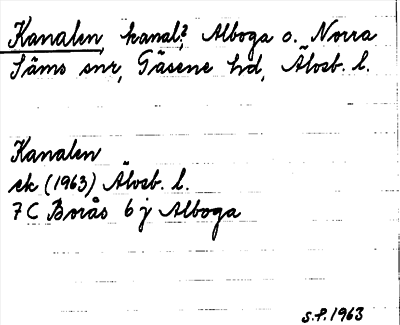 Kanalen, kanal?, Alboga o. Norra
Säms snr, Gäsene hd, Älvsb. l.
Kanalen
ek (1963) Älvsb. l.
7 C Borås 6 j Alboga
S.P. 1963